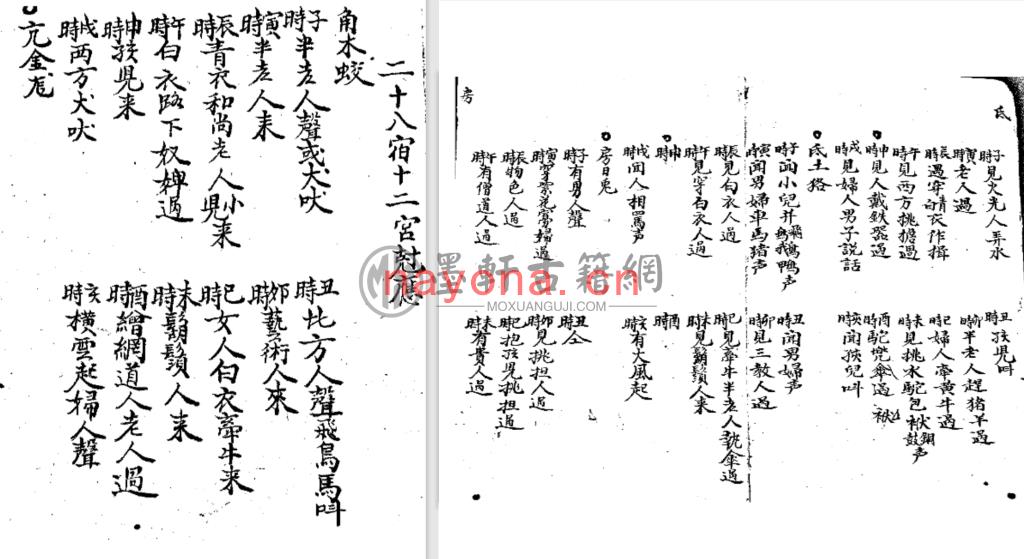 二十八宿十二宮尅應
角木蛟
子時半老人聲或犬吠
丑時北方人聲飛鳥馬叫
寅時半老人来
卯時藝術人來
辰時青衣和尚老人小兒来
巳時女人白衣牵牛来
午時白衣路下奴婢過
未時鬍鬚人来
申時孩兒来
酉時繒網道人老人過
戌時两方犬吠
亥時橫雲起婦人聲
亢金龙
氐
子時見火光人弄水
丑時孩児叫
寅時老人過
卯時半老人趕猪羊過
辰時遇穿晴衣作揖
巳時婦人牵黄牛過
午時見西方挑擔過
未時見挑水駝包袱鼓声
申時見人戴鉄器過
酉時駝凳傘過 袱
戌時見婦人男子説話
亥時聞孩兒叫
氐土狢
子時聞小兒并鵝鴨声
丑時聞男婦声
寅時聞男婦車馬猪声
卯時見三教人過
辰時見白衣人過
巳時見牽牛半老人執傘過
午時見穿白衣人過
未時見鬍鬚人来
申時
酉時
戌時聞人相罵声
亥時有大風起
房日兎
子時有男人聲
丑時仝
寅時穿紫花婦過
卯時見挑担人過
辰時物色人過
巳時抱孩児挑担過
午時有僧道人過
未時有貴人過
房
墨軒古籍網
nayona.cn
MOXUANGUJI.COM